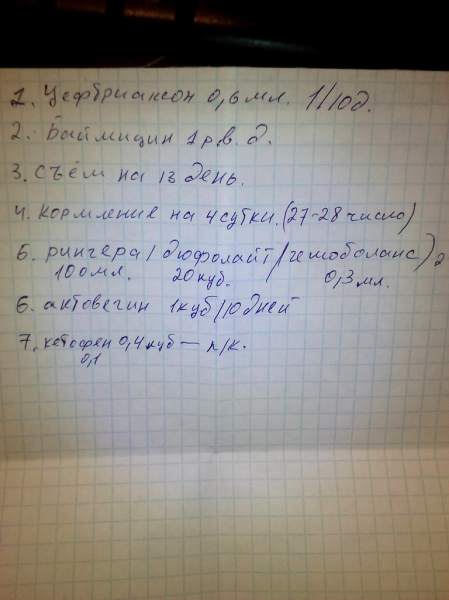 1. Цефбриаксон 0,6 мл. 1/10д.
2. Баймицин 1 р.в.д.
3. Съём на 13 день.
4. Кормление на 4 сутки. (27-28 число)
5. рингера/дюфолайт/гемобаланс)
100мл. 20куб. 0,3 мл.
6. актовегин 1куб/10дней
7. кетофен 0,4куб — п/к.
0,1